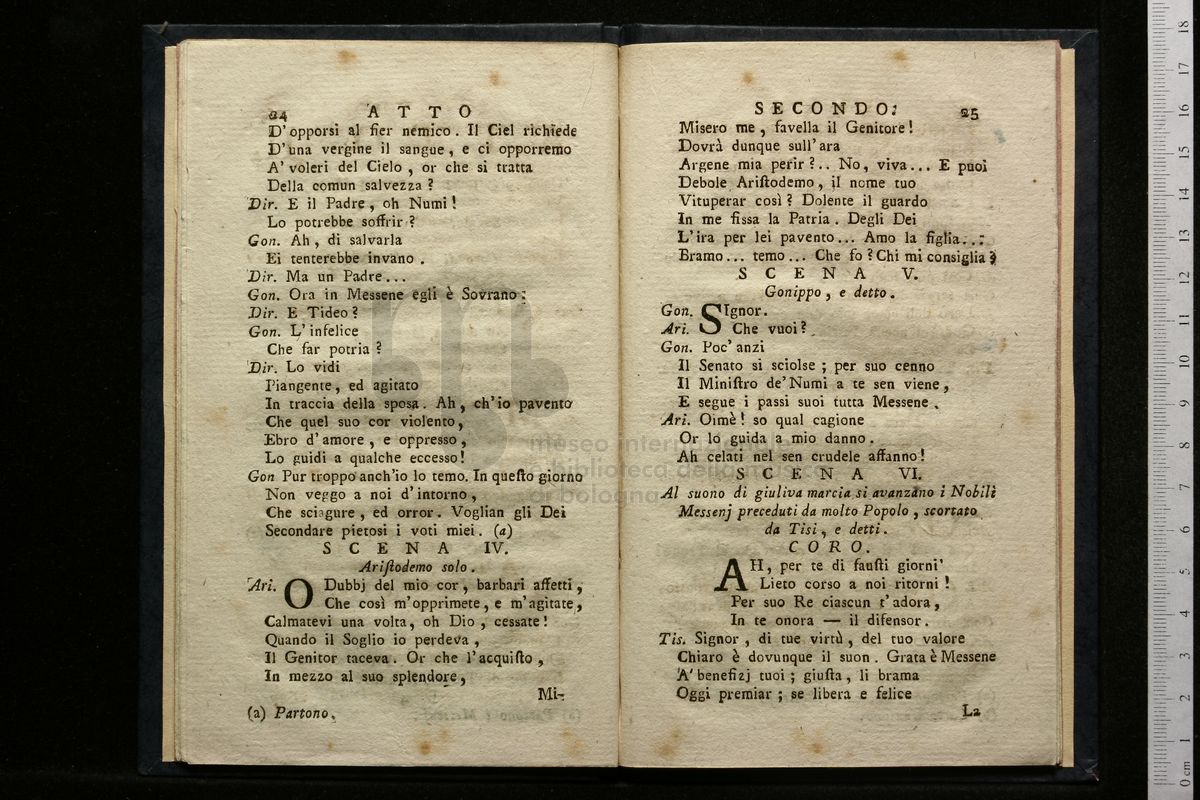 24 ATTO
D'opporsi al fier nemico. Il Ciel richiede
D'una vergine il sangue, e ci opporremo
A' voleri del Cielo, or che si tratta
Della comun salvezza?
Dir. E il Padre, oh Numi!
Lo potrebbe soffrir?
Gon. Ah, di salvarla
Ei tenterebbe invano.
Dir. Ma un Padre...
Gon. Ora in Messene egli è Sovrano:
Dir. E Tideo?
Gon. L'infelice
Che far potria?
Dir. Lo vidi
Piangente, ed agitato
In traccia della sposa. Ah, ch'io pavento
Che quel suo cor violento,
Ebro d'amore, e oppresso,
Lo guidi a qualche eccesso!
Gon Pur troppo anch'io lo temo. In questo giorno
Non veggo a noi d'intorno,
Che sciagure, ed orror. Voglian gli Dei
Secondare pietosi i voti miei. (a)
SCENA IV.
Aristodemo solo.
Ari. O Dubbj del mio cor, barbari affetti,
Che così m'opprimete, e m'agitate,
Calmatevi una volta, oh Dio, cessate!
Quando il Soglio io perdeva,
Il Genitor taceva. Or che l'acquisto,
In mezzo al suo splendore,
Mi-
(a) Partono.
SECONDO. 25
Misero me, favella il Genitore!
Dovrà dunque sull'ara
Argene mia perir?.. No, viva... E puoi
Debole Aristodemo, il nome tuo
Vituperar così? Dolente il guardo
In me fissa la Patria. Degli Dei
L'ira per lei pavento... Amo la figlia...
Bramo... temo... Che fo? Chi mi consiglia?
SCENA V.
Gonippo, e detto.
Gon. SIgnor.
Ari. Che vuoi?
Gon. Poc'anzi
Il Senato si sciolse; per suo cenno
Il Ministro de' Numi a te sen viene,
E segue i passi suoi tutta Messene.
Ari. Oimè! so qual cagione
Or lo guida a mio danno.
Ah celati nel sen crudele affanno!
SCENA VI.
Al suono di giuliva marcia si avanzano i Nobili
Messenj preceduti da molto Popolo, scortato
da Tisi, e detti.
CORO.
AH, per te di fausti giorni
Lieto corso a noi ritorni!
Per suo Re ciascun t'adora,
In te onora — il difensor.
Tis. Signor, di tue virtù, del tuo valore
Chiaro è dovunque il suon. Grata è Messene
A' benefizj tuoi; giusta, li brama
Oggi premiar; se libera e felice
La
museo internazionale
e biblioteca della musica
di bologna
0 cm 1 2 3 4 5 6 7 8 9 10 11 12 13 14 15 16 17 18